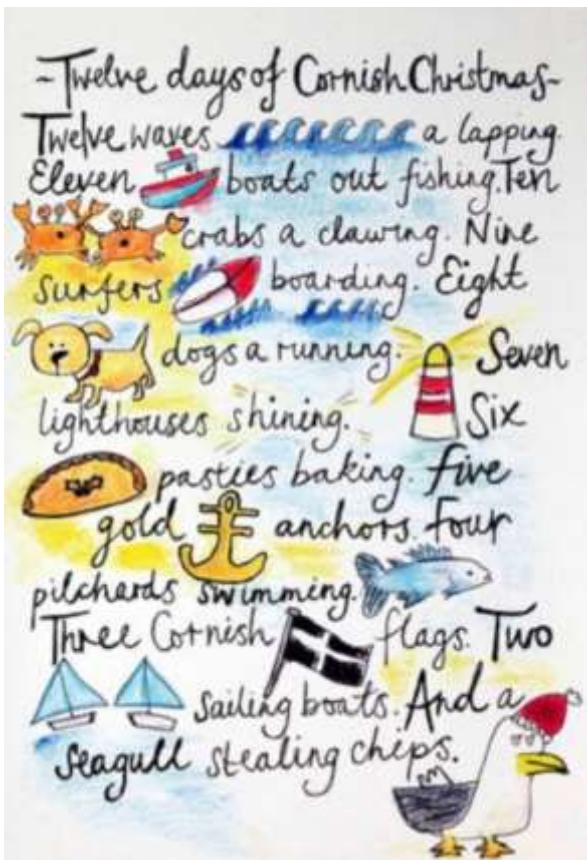 ~Twelve days of Cornish Christmas~
Twelve waves a lapping.
Eleven boats out fishing. Ten
crabs a clawing. Nine
surfers boarding. Eight
dogs a running. Seven
lighthouses shining. Six
pasties baking. five
gold anchors. four
pilchards swimming.
Three Cornish flags. Two
Sailing boats. And a
seagull stealing chips.